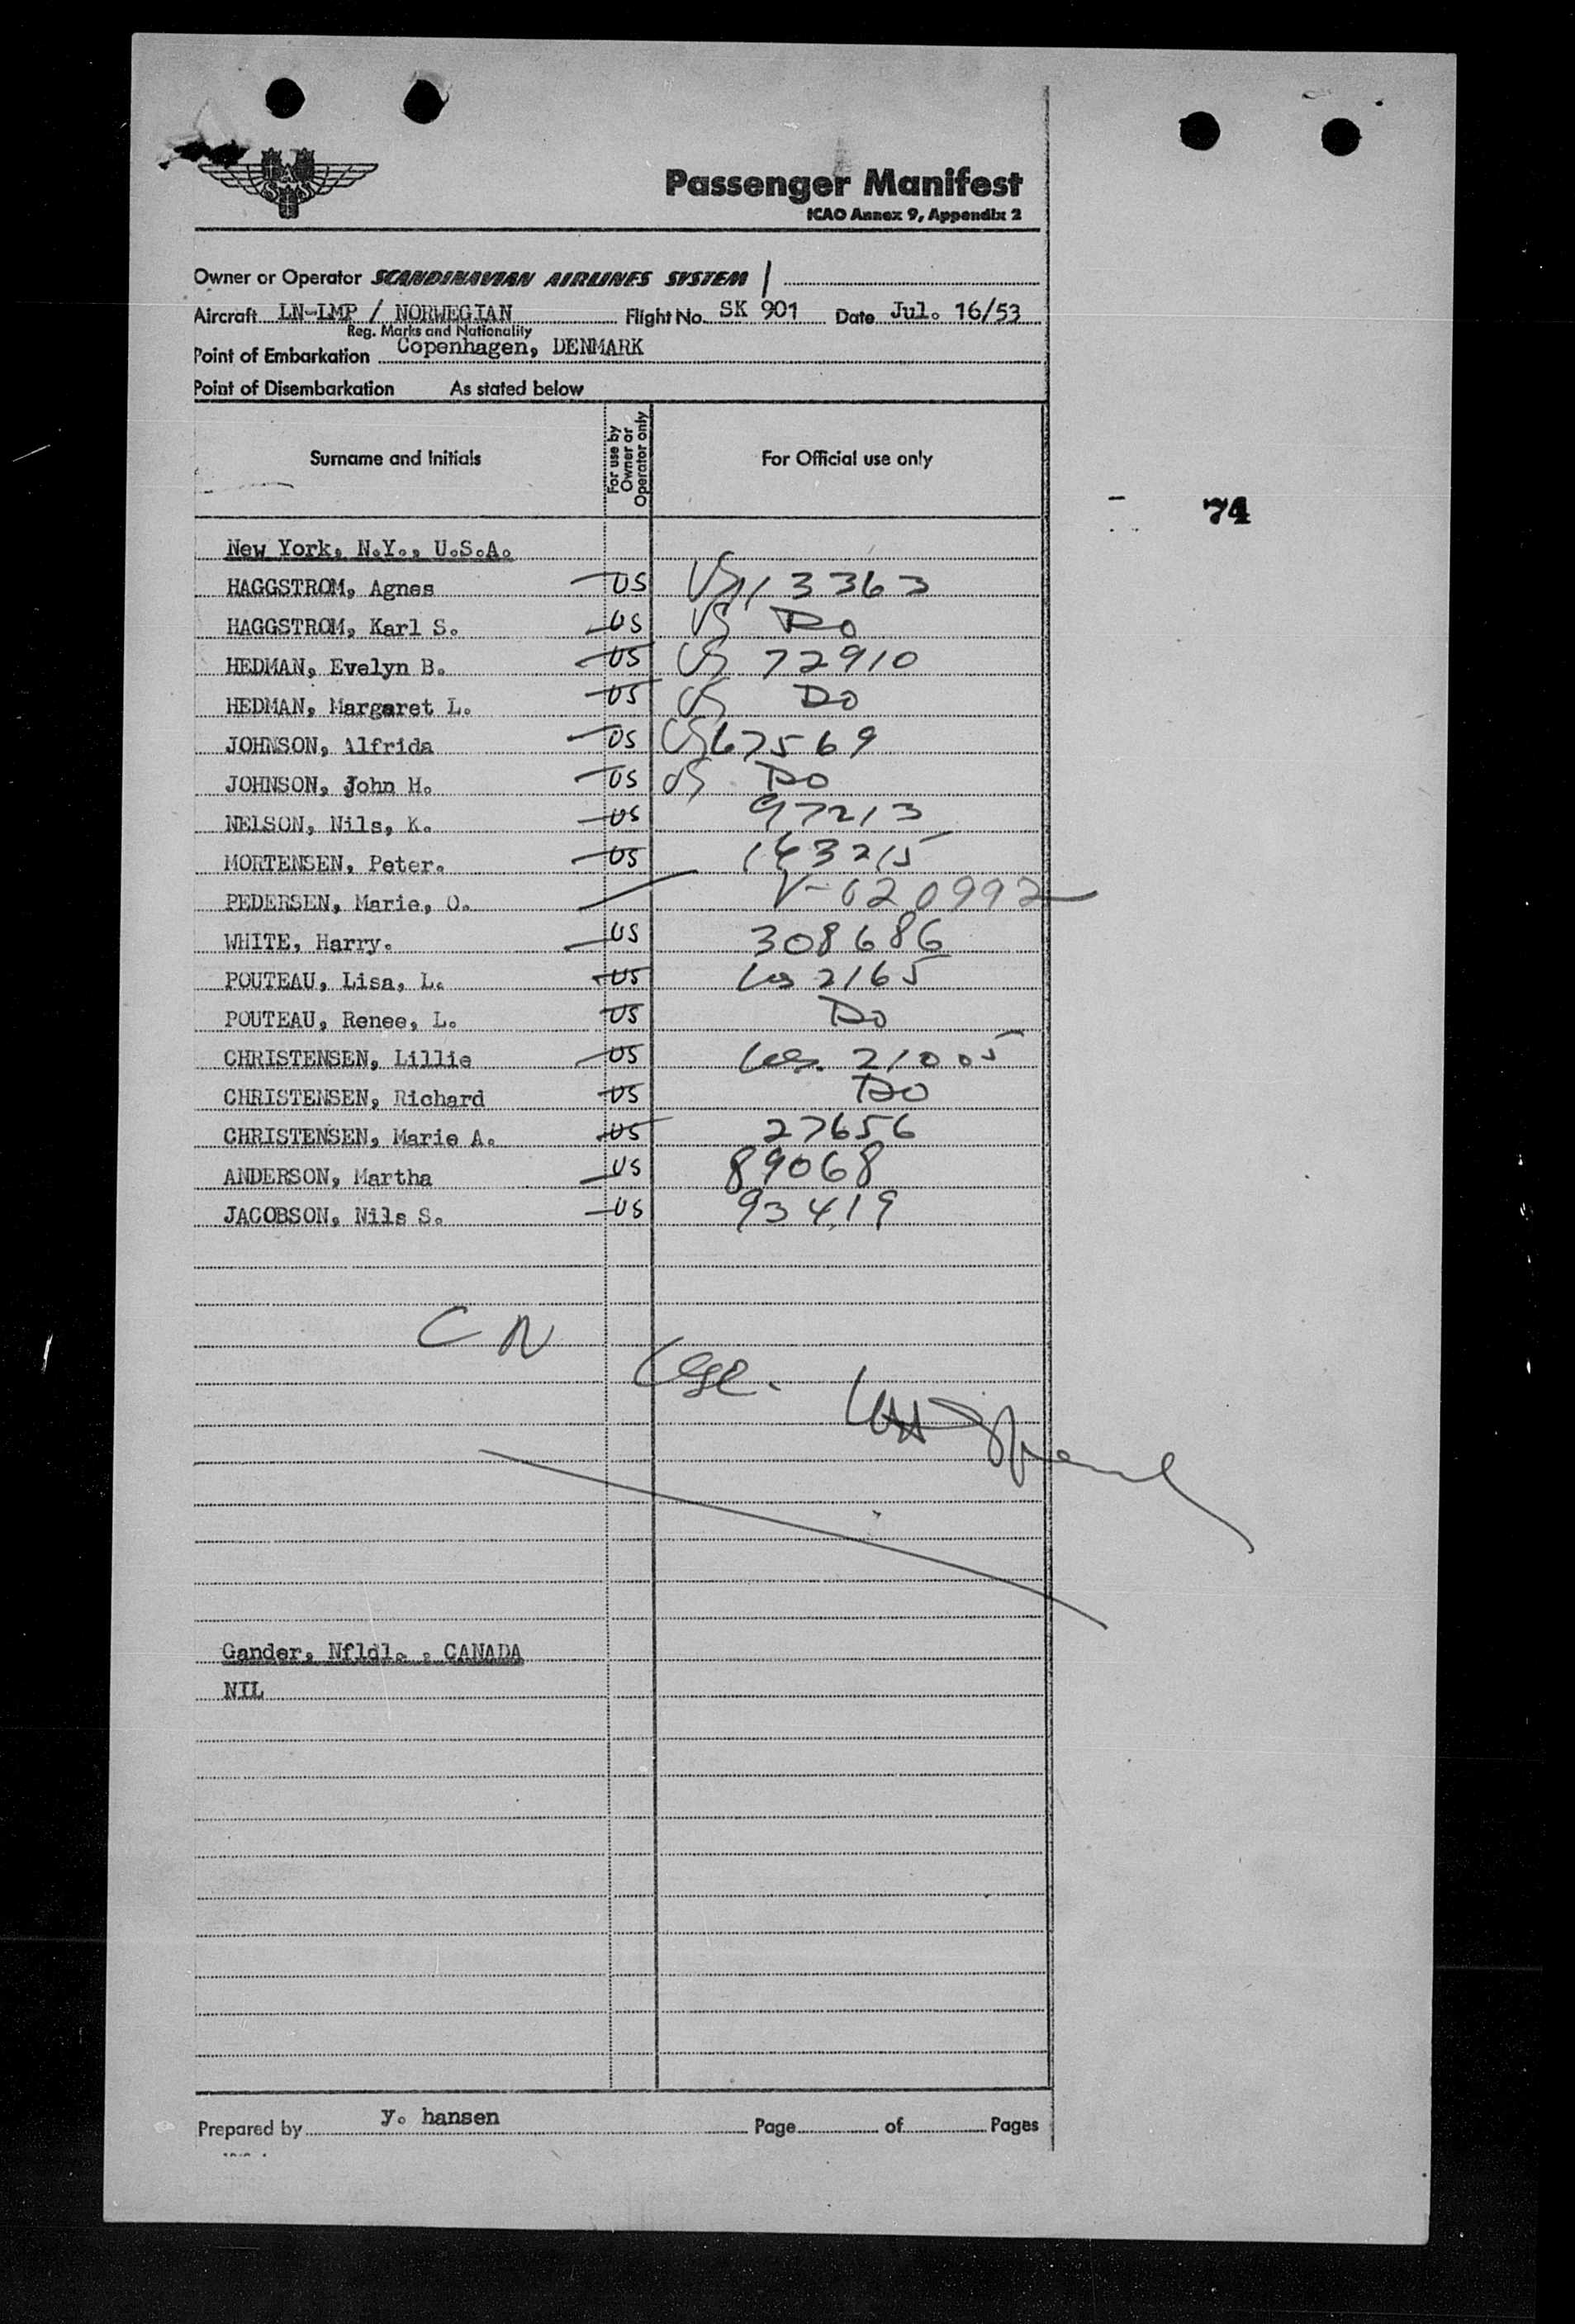 SAS
Passenger Manifest
ICAO Annex 9, Appendix 2
Owner or Operator SCANDINAVIAN AIRLINES SYSTEM /
Aircraft LN-LMP / NORWEGIAN Flight No. SK 901 Date Jul. 16/53
Reg. Marks and Nationality
Point of Embarkation Copenhagen, DENMARK
Point of Disembarkation As stated below
Surname and Initials For use by Owner or Operator only For Official use only
74
New York, N.Y., U.S.A.
HAGGSTROM, Agnes US US 113363
HAGGSTROM, Karl S. US US DO
HEDMAN, Evelyn B. US US 72910
HEDMAN, Margaret L. US US DO
JOHNSON, Alfrida US US 67569
JOHNSON, John H. US US DO
NELSON, Nils, K. US 97213
MORTENSEN, Peter. US 143215
PEDERSEN, Marie, O. V-020992
WHITE, Harry. US 308686
POUTEAU, Lisa, L. US US 2165
POUTEAU, Renee, L. US DO
CHRISTENSEN, Lillie US 21005
CHRISTENSEN, Richard US DO
CHRISTENSEN, Marie A. US 27656
ANDERSON, Martha US 89068
JACOBSON, Nils S. US 93419
C N
Gander, Nfldl. , CANADA
NIL
Prepared by y. hansen Page of Pages